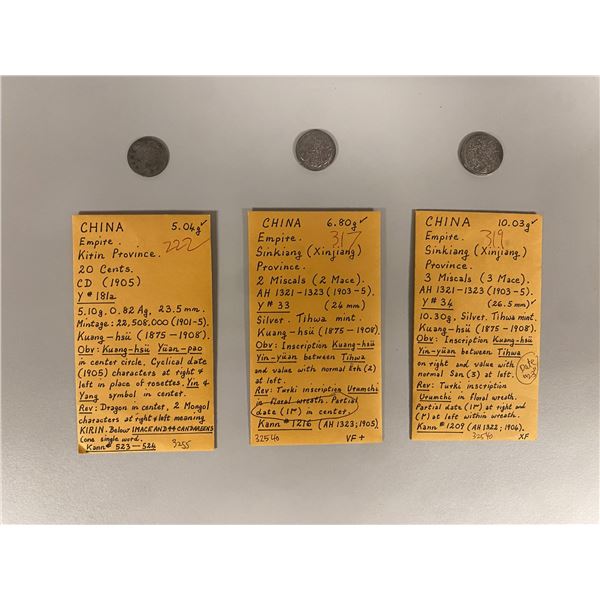 CHINA 5.04g✓
Empire. 222
Kirin Province.
20 Cents.
CD (1905)
Y # 181a
5.10g. 0.82 Ag, 23.5 mm.
Mintage: 22,508,000 (1901-5).
Kuang-hsü (1875-1908).
Obv: Kuang-hsü Yüan-pao
in center circle. Cyclical date
(1905) characters at right &
left in place of rosettes. Yin &
Yang symbol in center.
Rev: Dragon in center, 2 Mongol
characters at right & left meaning
KIRIN. Below 1 MACE AND 44 CANDAREENS
(one single word.
Kann# 523-524
CHINA 6.80g✓
Empire. 317
Sinkiang (Xinjiang)
Province.
2 Miscals (2 Mace).
AH 1321-1323 (1903-5).
Y # 33 (24 mm)
Silver. Tihwa mint.
Kuang-hsü (1875-1908).
Obv: Inscription Kuang-hsü
Yin-yüan between Tihwa
and value with normal Erh (2)
at left.
Rev: Turki inscription Urumchi
in floral wreath. Partial
date (1٣) in center.
Kann # 1216 (AH 1323; 1905)
32540 VF+
CHINA 10.03g✓
Empire. 319
Sinkiang (Xinjiang)
Province.
3 Miscals (3 Mace).
AH 1321-1323 (1903-5).
Y # 34 (26.5 mm)✓
10.30g. Silver. Tihwa mint.
Kuang-hsü (1875-1908).
Obv: Inscription Kuang-hsü
Yin-yüan between Tihwa
on right and value with
normal San (3) at left. Date
Rev: Turki inscription
Urumchi in floral wreath.
Partial date (1٣) at right and
(٣) at left within wreath.
Kann # 1209 (AH 1322; 1904).
32540 XF